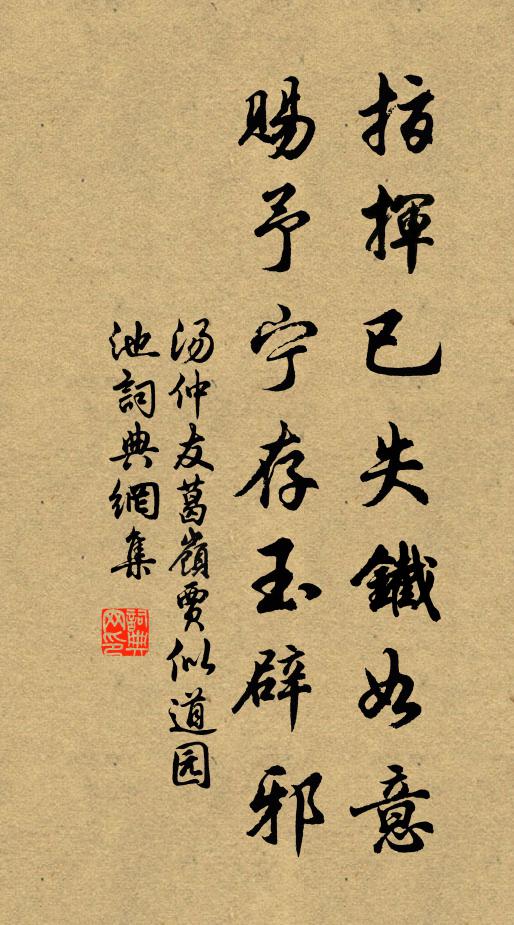 指揮已失鐵如意
賜予宁存玉辟邪
汤仲友葛嶺賈似道园
池詞典網集
詞典网印